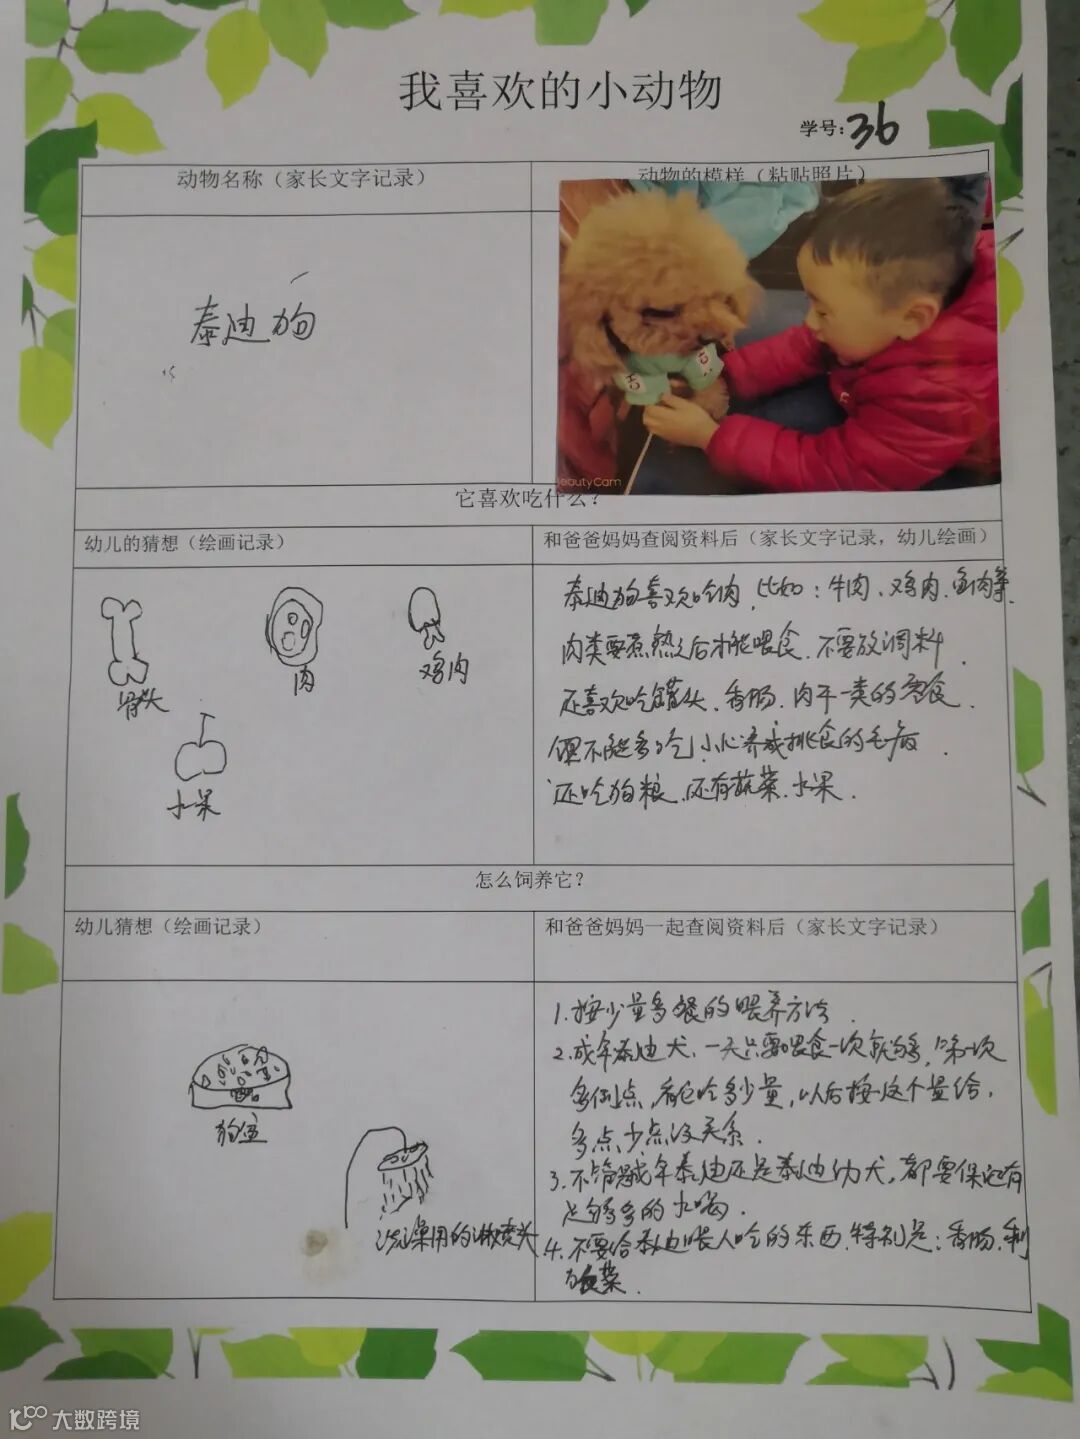 我喜欢的小动物
学号:36
动物名称（家长文字记录）
动物的模样（粘贴照片）
泰迪狗
BeautyCam
它喜欢吃什么？
幼儿的猜想（绘画记录）
和爸爸妈妈查阅资料后（家长文字记录，幼儿绘画）
骨头
肉
鸡肉
水果
泰迪狗喜欢吃肉，比如：牛肉、鸡肉、鱼肉等.
肉类要煮熟之后才能喂食.不要放调料.
还喜欢吃罐头、香肠、肉干一类的零食.
但不能多吃,小心养成挑食的毛病.
还吃狗粮.还有蔬菜.水果.
怎么饲养它？
幼儿猜想（绘画记录）
和爸爸妈妈一起查阅资料后（家长文字记录）
狗窝
洗澡用的淋喷头
1.按少量多餐的喂养方法.
2.成年泰迪犬,一天只要喂食一次就够,第一次
多倒点,看它吃多少量,以后按这个量给,
多点少点没关系.
3.不管是成年泰迪还是泰迪幼犬,都要保证有
足够多的水喝.
4.不要给泰迪喂人吃的东西.特别是:香肠.剩
菜.
大数跨境